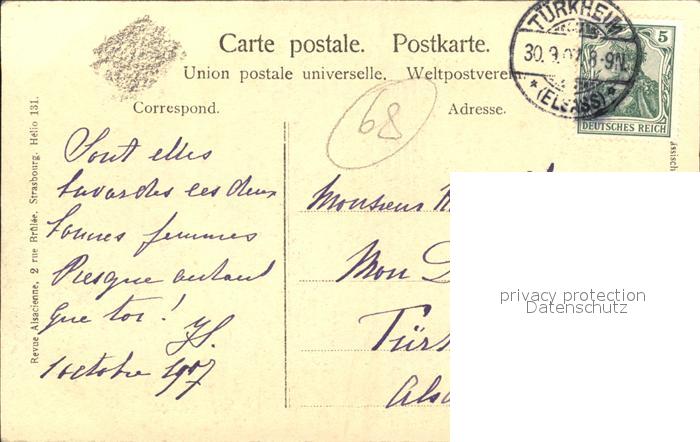 Carte postale. Postkarte.
Union postale universelle. Weltpostverein.
Correspond. Adresse.
TÜRKHEIM
30.9.07. 8-9N.
* (ELSASS) *
5
DEUTSCHES REICH
68
Sont elles
bavardes ces deux
bonnes femmes
Presque autant
que toi !
1 octobre 1907
Monsieur
Mon
Tür
Alsa
Revue Alsacienne, 2 rue Brûlée, Strasbourg. Hélio 131.
privacy protection
Datenschutz